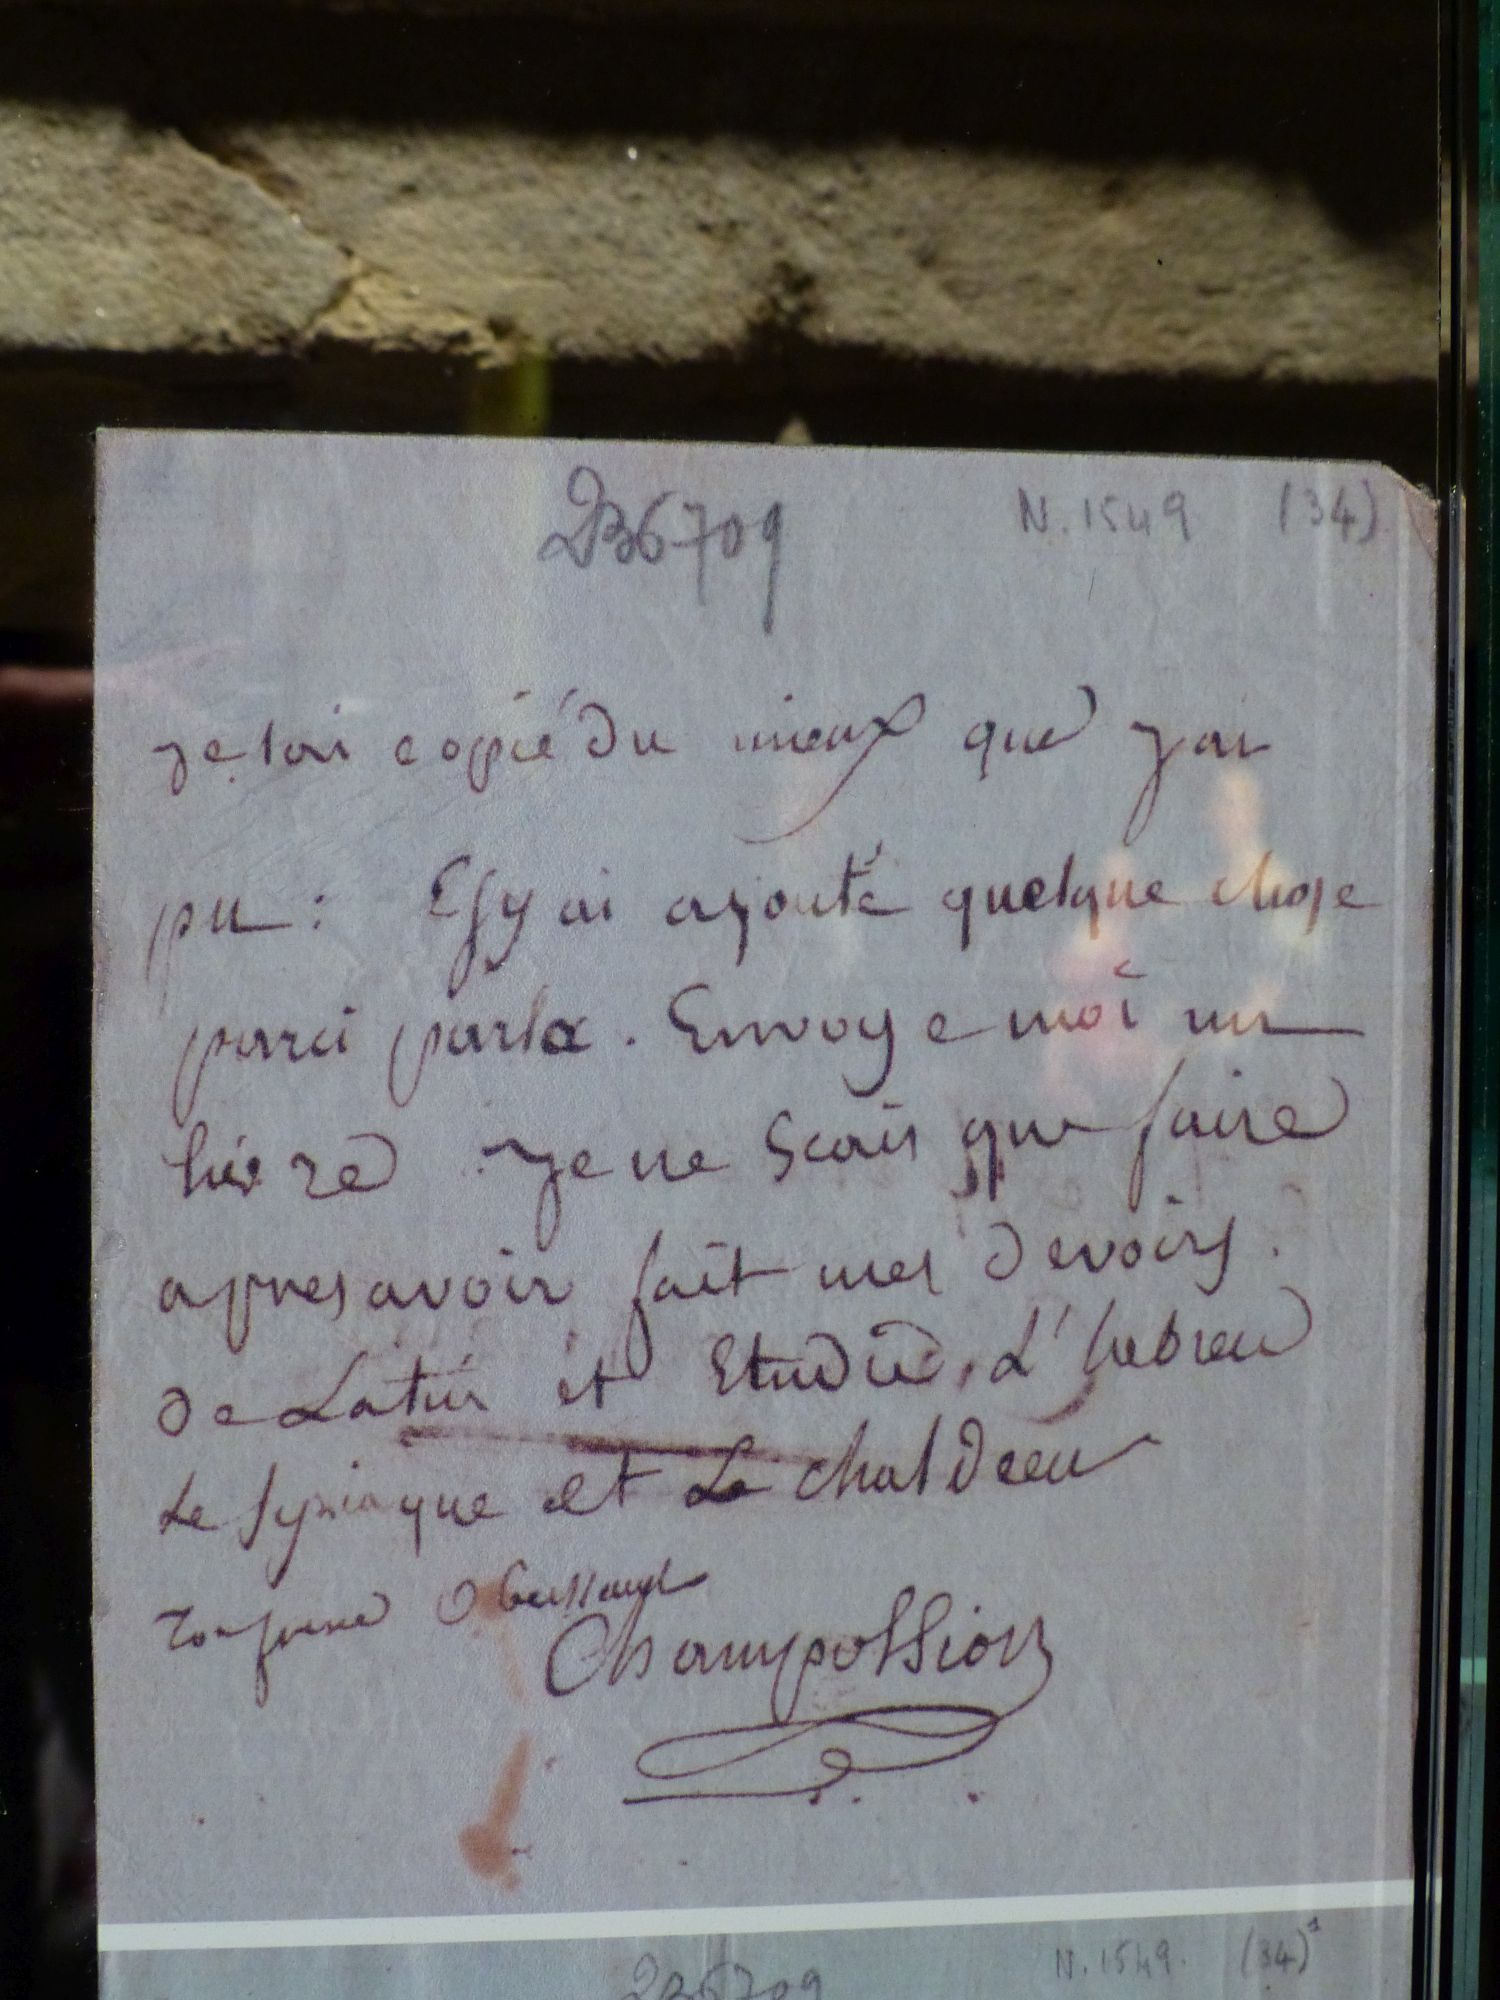 2B6709 N. 1549 (34)
je lai copié du mieux que jai
pu : Es jy ai ajouté quelque chose
parci parla . Envoye moi un
livre je ne Scais que faire
apres avoir fait mes devoirs .
de Latin et Etudié L'hebreu
Le syriaque et Le chaldeeu
ton frere
Champollion
2B6709 N. 1549. (34)¹